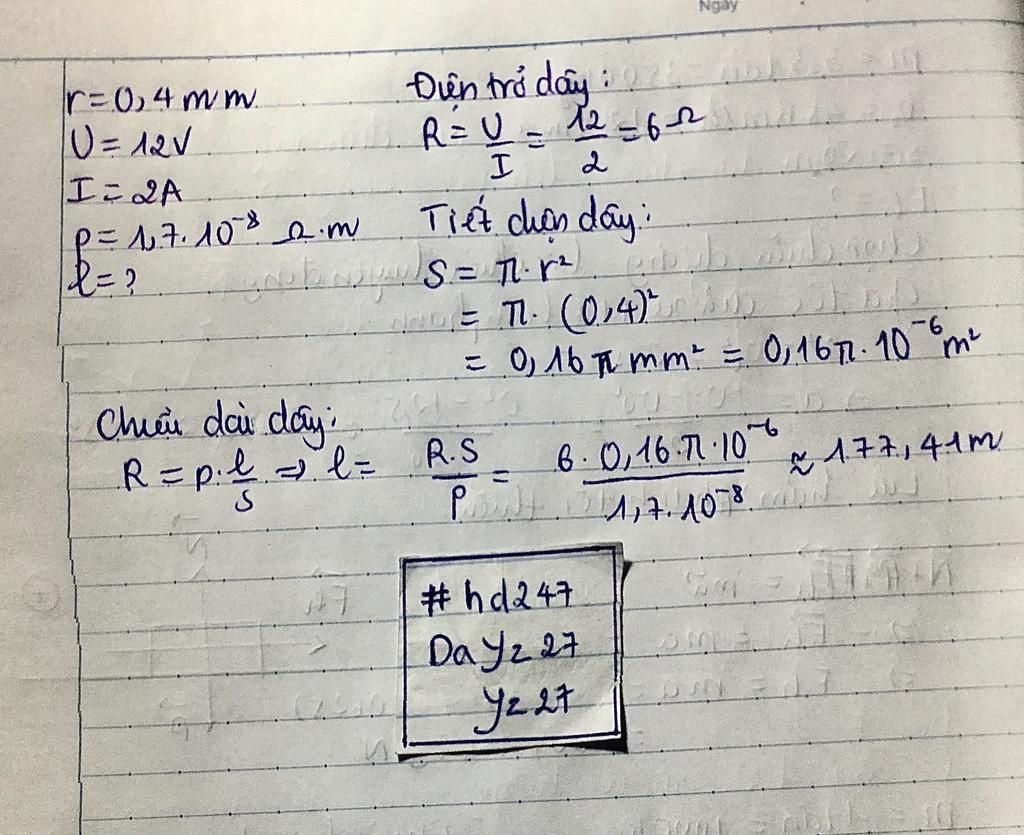 Ngày
r = 0,4 mm
U = 12V
I = 2A
ρ = 1,7. 10⁻⁸ Ω.m
l = ?
Điện trở dây:
R = U/I = 12/2 = 6 Ω
Tiết diện dây:
S = π. r²
= π. (0,4)²
= 0,16 π mm² = 0,16π. 10⁻⁶ m²
Chiều dài dây:
R = ρ. l/S => l = R.S/ρ = 6. 0,16. π. 10⁻⁶/1,7. 10⁻⁸ ≈ 177,41m
# hd247
Dayz27
yz27